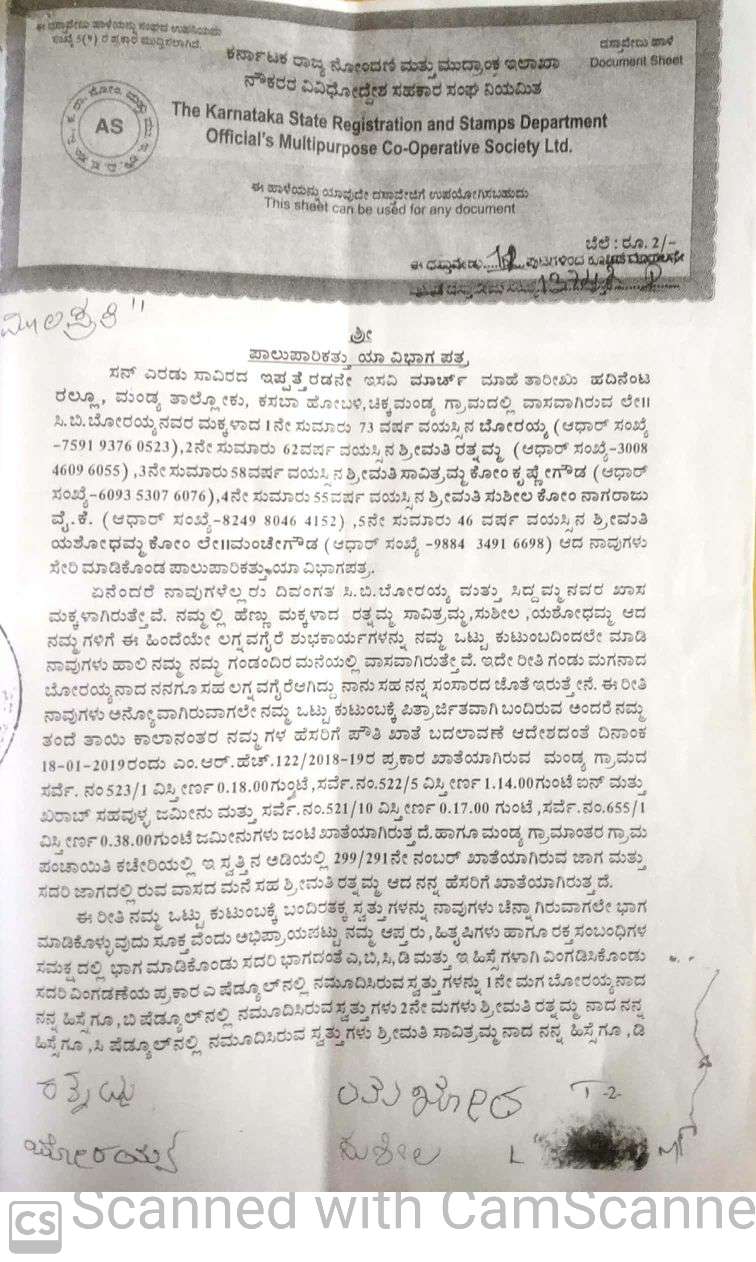 ಈ ದಸ್ತಾವೇಜು ಹಾಳೆಯನ್ನು ಸಂಘದ ಉಪನಿಯಮ
ಸಂಖ್ಯೆ 5(9) ರ ಪ್ರಕಾರ ಮುದ್ರಿಸಲಾಗಿದೆ.
ದಸ್ತಾವೇಜು ಹಾಳೆ
Document Sheet
ಕರ್ನಾಟಕ ರಾಜ್ಯ ನೋಂದಣಿ ಮತ್ತು ಮುದ್ರಾಂಕ ಇಲಾಖಾ
ನೌಕರರ ವಿವಿಧೋದ್ದೇಶ ಸಹಕಾರ ಸಂಘ ನಿಯಮಿತ
AS
The Karnataka State Registration and Stamps Department
Official's Multipurpose Co-Operative Society Ltd.
ಈ ಹಾಳೆಯನ್ನು ಯಾವುದೇ ದಸ್ತಾವೇಜಿಗೆ ಉಪಯೋಗಿಸಬಹುದು
This sheet can be used for any document
ಬೆಲೆ : ರೂ. 2/-
ಈ ದಸ್ತಾವೇಜು....12...ಪುಟಗಳಿಂದ
13742
ಮೂಲಪ್ರತಿ "
ಶ್ರೀ
ಪಾಲುಪಾರಿಕತ್ತು ಯಾ ವಿಭಾಗ ಪತ್ರ
ಸನ್ ಎರಡು ಸಾವಿರದ ಇಪ್ಪತ್ತೆರಡನೇ ಇಸವಿ ಮಾರ್ಚ್ ಮಾಹೆ ತಾರೀಖು ಹದಿನೆಂಟ
ರಲ್ಲೂ, ಮಂಡ್ಯ ತಾಲ್ಲೋಕು, ಕಸಬಾ ಹೋಬಳಿ,ಚಿಕ್ಕಮಂಡ್ಯ ಗ್ರಾಮದಲ್ಲಿ ವಾಸವಾಗಿರುವ ಲೇ॥
ಸಿ.ಬಿ.ಬೋರಯ್ಯನವರ ಮಕ್ಕಳಾದ 1ನೇ ಸುಮಾರು 73 ವರ್ಷ ವಯಸ್ಸಿನ ಬೋರಯ್ಯ (ಆಧಾರ್ ಸಂಖ್ಯೆ
-7591 9376 0523),2ನೇ ಸುಮಾರು 62ವರ್ಷ ವಯಸ್ಸಿನ ಶ್ರೀಮತಿ ರತ್ನಮ್ಮ (ಆಧಾರ್ ಸಂಖ್ಯೆ-3008
4609 6055) ,3ನೇ ಸುಮಾರು 58ವರ್ಷ ವಯಸ್ಸಿನ ಶ್ರೀಮತಿ ಸಾವಿತ್ರಮ್ಮ ಕೋಂ ಕೃಷ್ಣೇಗೌಡ (ಆಧಾರ್
ಸಂಖ್ಯೆ-6093 5307 6076),4ನೇ ಸುಮಾರು 55ವರ್ಷ ವಯಸ್ಸಿನ ಶ್ರೀಮತಿ ಸುಶೀಲ ಕೋಂ ನಾಗರಾಜು
ವೈ.ಕೆ. (ಆಧಾರ್ ಸಂಖ್ಯೆ-8249 8046 4152) ,5ನೇ ಸುಮಾರು 46 ವರ್ಷ ವಯಸ್ಸಿನ ಶ್ರೀಮತಿ
ಯಶೋಧಮ್ಮ ಕೋಂ ಲೇ॥ಮಂಚೇಗೌಡ (ಆಧಾರ್ ಸಂಖ್ಯೆ -9884 3491 6698) ಆದ ನಾವುಗಳು
ಸೇರಿ ಮಾಡಿಕೊಂಡ ಪಾಲುಪಾರಿಕತ್ತು ಯಾ ವಿಭಾಗಪತ್ರ.
ಏನೆಂದರೆ ನಾವುಗಳೆಲ್ಲರು ದಿವಂಗತ ಸಿ.ಬಿ.ಬೋರಯ್ಯ ಮತ್ತು ಸಿದ್ದಮ್ಮನವರ ಖಾಸ
ಮಕ್ಕಳಾಗಿರುತ್ತೇವೆ. ನಮ್ಮಲ್ಲಿ ಹೆಣ್ಣು ಮಕ್ಕಳಾದ ರತ್ನಮ್ಮ ಸಾವಿತ್ರಮ್ಮ,ಸುಶೀಲ ,ಯಶೋಧಮ್ಮ ಆದ
ನಮ್ಮಗಳಿಗೆ ಈ ಹಿಂದೆಯೇ ಲಗ್ನವಗೈರೆ ಶುಭಕಾರ್ಯಗಳನ್ನು ನಮ್ಮ ಒಟ್ಟು ಕುಟುಂಬದಿಂದಲೇ ಮಾಡಿ
ನಾವುಗಳು ಹಾಲಿ ನಮ್ಮ ನಮ್ಮ ಗಂಡಂದಿರ ಮನೆಯಲ್ಲಿ ವಾಸವಾಗಿರುತ್ತೇವೆ. ಇದೇ ರೀತಿ ಗಂಡು ಮಗನಾದ
ಬೋರಯ್ಯನಾದ ನನಗೂ ಸಹ ಲಗ್ನವಗೈರೆಆಗಿದ್ದು ನಾನು ಸಹ ನನ್ನ ಸಂಸಾರದ ಜೊತೆ ಇರುತ್ತೇನೆ. ಈ ರೀತಿ
ನಾವುಗಳು ಅನ್ಯೋವಾಗಿರುವಾಗಲೇ ನಮ್ಮ ಒಟ್ಟು ಕುಟುಂಬಕ್ಕೆ ಪಿತ್ರಾರ್ಜಿತವಾಗಿ ಬಂದಿರುವ ಅಂದರೆ ನಮ್ಮ
ತಂದೆ ತಾಯಿ ಕಾಲಾನಂತರ ನಮ್ಮಗಳ ಹೆಸರಿಗೆ ಪೌತಿ ಖಾತೆ ಬದಲಾವಣೆ ಆದೇಶದಂತೆ ದಿನಾಂಕ
18-01-2019ರಂದು ಎಂ.ಆರ್.ಹೆಚ್.122/2018-19ರ ಪ್ರಕಾರ ಖಾತೆಯಾಗಿರುವ ಮಂಡ್ಯ ಗ್ರಾಮದ
ಸರ್ವೆ. ನಂ523/1 ವಿಸ್ತೀರ್ಣ 0.18.00ಗುಂಟೆ ,ಸರ್ವೆ.ನಂ.522/5 ವಿಸ್ತೀರ್ಣ 1.14.00ಗುಂಟೆ ಐನ್ ಮತ್ತು
ಖರಾಬ್ ಸಹವುಳ್ಳ ಜಮೀನು ಮತ್ತು ಸರ್ವೆ.ನಂ.521/10 ವಿಸ್ತೀರ್ಣ 0.17.00 ಗುಂಟೆ ,ಸರ್ವೆ.ನಂ.655/1
ವಿಸ್ತೀರ್ಣ 0.38.00ಗುಂಟೆ ಜಮೀನುಗಳು ಜಂಟಿ ಖಾತೆಯಾಗಿರುತ್ತದೆ.ಹಾಗೂ ಮಂಡ್ಯ ಗ್ರಾಮಾಂತರ ಗ್ರಾಮ
ಪಂಚಾಯಿತಿ ಕಚೇರಿಯಲ್ಲಿ ಇ ಸ್ವತ್ತಿನ ಅಡಿಯಲ್ಲಿ 299/291ನೇ ನಂಬರ್ ಖಾತೆಯಾಗಿರುವ ಜಾಗ ಮತ್ತು
ಸದರಿ ಜಾಗದಲ್ಲಿರುವ ವಾಸದ ಮನೆ ಸಹ ಶ್ರೀಮತಿ ರತ್ನಮ್ಮ ಆದ ನನ್ನ ಹೆಸರಿಗೆ ಖಾತೆಯಾಗಿರುತ್ತದೆ.
ಈ ರೀತಿ ನಮ್ಮ ಒಟ್ಟು ಕುಟುಂಬಕ್ಕೆ ಬಂದಿರತಕ್ಕ ಸ್ವತ್ತುಗಳನ್ನು ನಾವುಗಳು ಚೆನ್ನಾಗಿರುವಾಗಲೇ ಭಾಗ
ಮಾಡಿಕೊಳ್ಳುವುದು ಸೂಕ್ತವೆಂದು ಅಭಿಪ್ರಾಯಪಟ್ಟು ನಮ್ಮ ಆಪ್ತರು ,ಹಿತೈಷಿಗಳು ಹಾಗೂ ರಕ್ತ ಸಂಬಂಧಿಗಳ
ಸಮಕ್ಷದಲ್ಲಿ ಭಾಗ ಮಾಡಿಕೊಂಡು ಸದರಿ ಭಾಗದಂತೆ ಎ,ಬಿ,ಸಿ,ಡಿ ಮತ್ತು ಇ ಹಿಸ್ಸೆಗಳಾಗಿ ವಿಂಗಡಿಸಿಕೊಂಡು
ಸದರಿ ವಿಂಗಡಣೆಯ ಪ್ರಕಾರ ಎ ಷೆಡ್ಯೂಲ್‌ನಲ್ಲಿ ನಮೂದಿಸಿರುವ ಸ್ವತ್ತುಗಳನ್ನು 1ನೇ ಮಗ ಬೋರಯ್ಯನಾದ
ನನ್ನ ಹಿಸ್ಸೆಗೂ ,ಬಿ ಷೆಡ್ಯೂಲ್‌ನಲ್ಲಿ ನಮೂದಿಸಿರುವ ಸ್ವತ್ತುಗಳು 2ನೇ ಮಗಳು ಶ್ರೀಮತಿ ರತ್ನಮ್ಮನಾದ ನನ್ನ
ಹಿಸ್ಸೆಗೂ ,ಸಿ ಷೆಡ್ಯೂಲ್‌ನಲ್ಲಿ ನಮೂದಿಸಿರುವ ಸ್ವತ್ತುಗಳು ಶ್ರೀಮತಿ ಸಾವಿತ್ರಮ್ಮನಾದ ನನ್ನ ಹಿಸ್ಸೆಗೂ ,ಡಿ
-2-
ಬೋರಯ್ಯ
ಸುಶೀಲ
CS Scanned with CamScanne